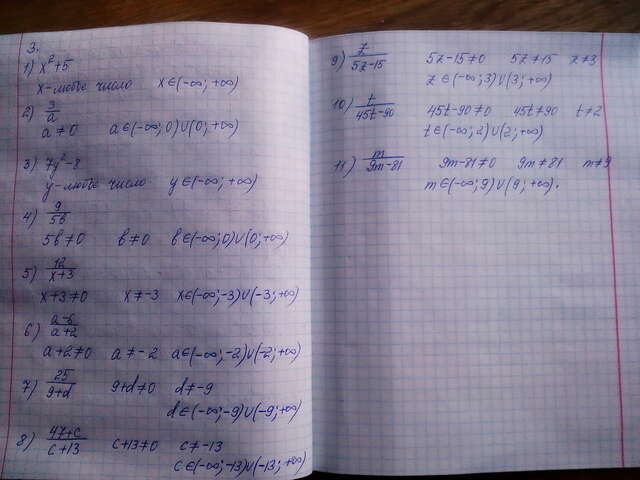 3.
1) x²+5
x-любое число x∈(-∞; +∞)
2) 3/a
a≠0 a∈(-∞; 0)∪(0; +∞)
3) 7y²-8
y-любое число y∈(-∞; +∞)
4) 9/5b
5b≠0 b≠0 b∈(-∞; 0)∪(0; +∞)
5) 12/x+3
x+3≠0 x≠-3 x∈(-∞; -3)∪(-3; +∞)
6) a-6/a+2
a+2≠0 a≠-2 a∈(-∞; -2)∪(-2; +∞)
7) 25/9+d 9+d≠0 d≠-9
d∈(-∞; -9)∪(-9; +∞)
8) 47+c/c+13 c+13≠0 c≠-13
c∈(-∞; -13)∪(-13; +∞)
9) z/5z-15 5z-15≠0 5z≠15 z≠3
z∈(-∞; 3)∪(3; +∞)
10) t/45t-90 45t-90≠0 45t≠90 t≠2
t∈(-∞; 2)∪(2; +∞)
11) m/9m-81 9m-81≠0 9m≠81 m≠9
m∈(-∞; 9)∪(9; +∞).